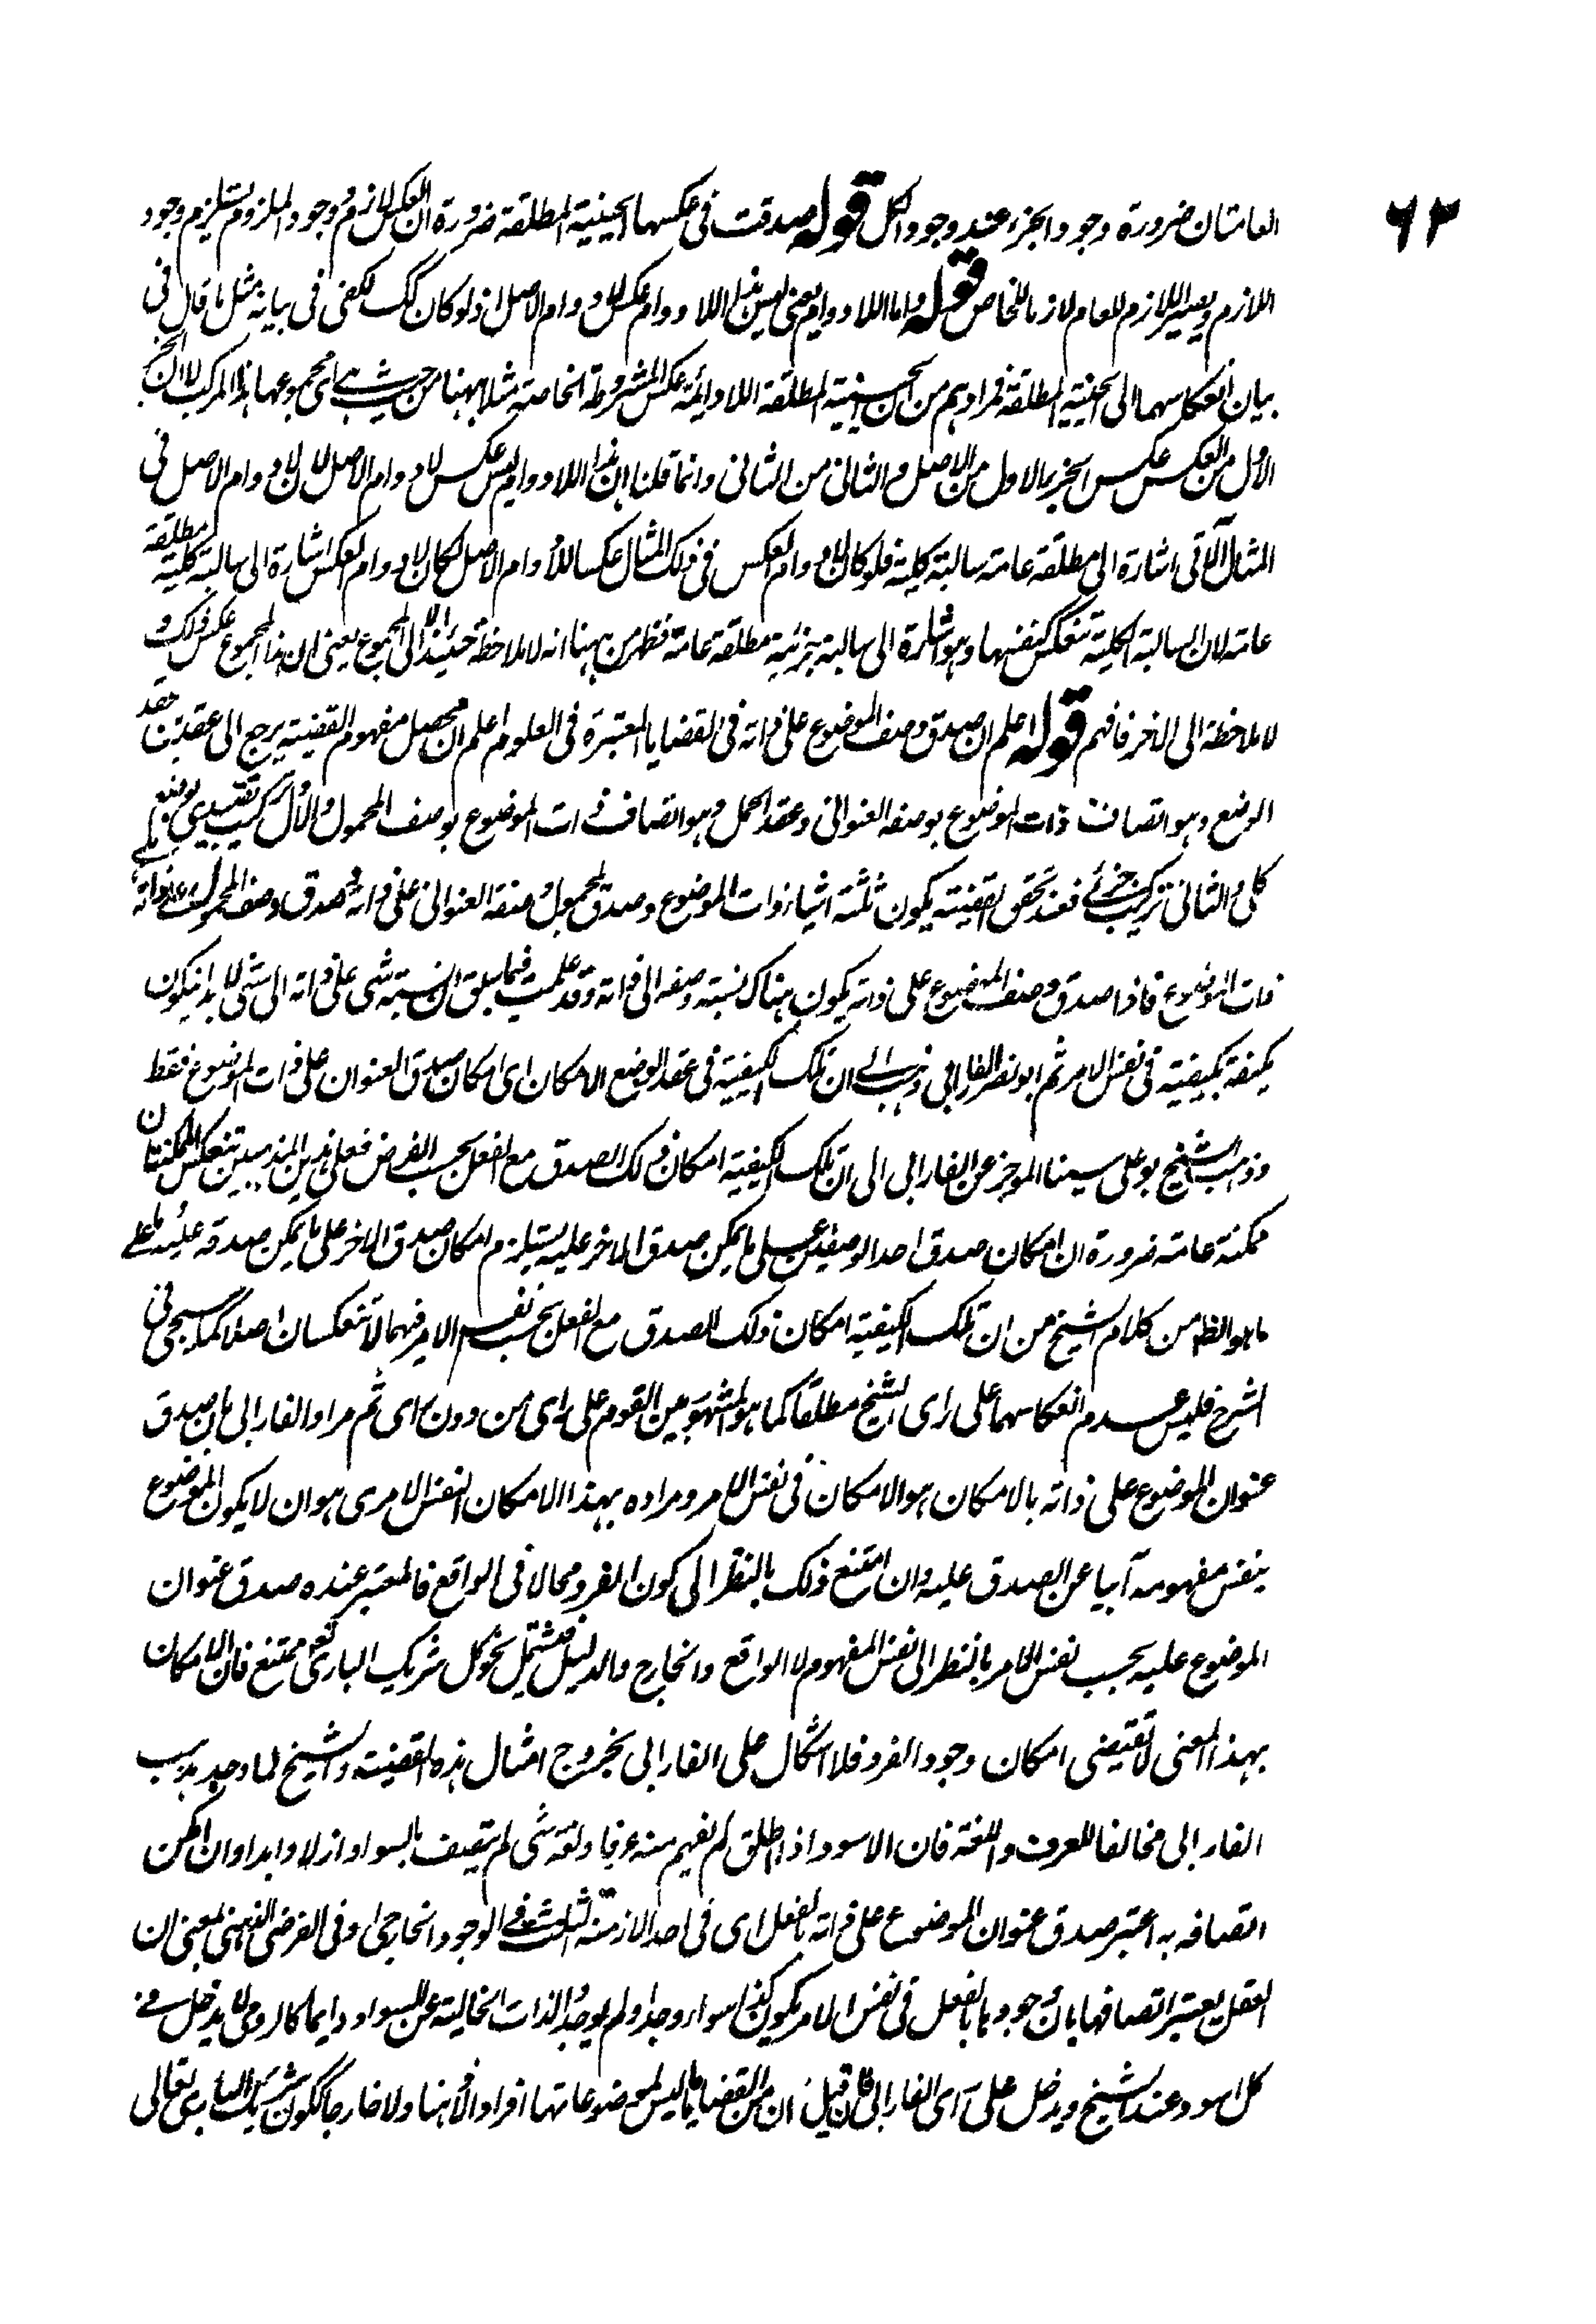 ٦٢
العامتان ضرورة وجود الجزء عند وجود الكل قوله صدقت فى عكسها الحينية المطلقة ضرورة ان العكس لازم ووجود الملزوم يستلزم وجود
اللازم ويصير اللازم للعام لازما للخاص قوله واما اللادوام يعنى ليس هذا اللادوام عكس لادوام الاصل اذ لو كان كك لكفى فى بيانه مثل ما قال فى
بيان انعكاسهما الى الحينية المطلقة فمرادهم من ان الحينية المطلقة اللادائمة عكس المشروطة الخاصة مثلا ههنا من حيث هى اى مجموعها هذا المركب لا ان الجزء
الاول من العكس عكس الجزء الاول من الاصل والثانى من الثانى وانما قلنا ان هذا اللادوام ليس عكس لادوام الاصل لان لادوام الاصل فى
المثال الآتى اشارة الى مطلقة عامة سالبة كلية فلو كان لادوام العكس فى ذلك المثال عكسا للادوام الاصل لكان لادوام العكس اشارة الى سالبة كلية مطلقة
عامة لان السالبة الكلية تنعكس كنفسها وهو اشارة الى سالبة جزئية مطلقة عامة فظهر من ههنا انه لا ملاحظة حينئذ الا الى المجموع يعنى ان هذا المجموع عكس ذلك و
لا ملاحظة الى الاخر فافهم قوله اعلم ان صدق وصف الموضوع على ذاته فى القضايا المعتبرة فى العلوم اعلم ان محصل مفهوم القضية يرجع الى عقدين عقد
الوضع وهو اتصاف ذات الموضوع بوصفه العنوانى وعقد الحمل وهو اتصاف ذات الموضوع بوصف المحمول والاول تركيب تقييدى
والثانى تركيب خبرى فعند تحقق القضية يكون ثلثة اشياء ذات الموضوع وصدق وصفه العنوانى على ذاته وصدق وصف المحمول على ذاته
ذات الموضوع فاذا صدق وصف الموضوع على ذاته يكون هناك نسبة وصفه الى ذاته وقد علمت فيما سبق ان نسبة شى على ذاته الى شى لا بد ان يكون
مكيفة بكيفية فى نفس الامر ثم ابو نصر الفارابى ذهب الى ان تلك الكيفية فى عقد الوضع الامكان اى امكان صدق العنوان على ذات الموضوع فقط
وذهب الشيخ بو على سينا الموجز عن الفارابى الى ان تلك الكيفية امكان ذلك الصدق مع الفعل بحسب الفرض فعلى هذين المذهبين تنعكس الممكنتان
ممكنة عامة ضرورة ان امكان صدق احد الوصفين على ما يمكن صدق الاخر عليه يستلزم امكان صدق الاخر على ما يمكن صدقه عليه واما على
ما هو الظ من كلام الشيخ من ان تلك الكيفية امكان ذلك الصدق مع الفعل بحسب نفس الامر فهما لا تنعكسان اصلا كما سيجى فى
الشرح فليس عدم انعكاسهما على راى الشيخ مطلقا كما هو المشهور بين القوم على راى من دون راى ثم مراد الفارابى بان صدق
عنوان الموضوع على ذاته بالامكان هو الامكان فى نفس الامر ومراده بهذا الامكان النفس الامرى هو ان لا يكون الموضوع
بنفس مفهومه آبيا عن الصدق عليه وان امتنع ذلك بالنظر الى كون الفرد محالا فى الواقع فالمعتبر عنده صدق عنوان
الموضوع عليه بحسب نفس الامر بالنظر الى نفس المفهوم لا الواقع والخارج والدليل فيشتمل نحو كل شريك البارى تعم ممتنع فان الامكان
بهذا المعنى لا يقتضى امكان وجود الفرد فلا اشكال على الفارابى بخروج امثال هذه القضية والشيخ لما وجد مذهب
الفارابى مخالفا للعرف واللغة فان الاسود اذا اطلق لم يفهم منه عرفا ولغة شى لم يتصف بالسواد ازلا وابدا وان امكن
اتصافه به اعتبر صدق عنوان الموضوع على ذاته بالفعل اى فى احد الازمنة الثلثة فى الوجود الخارجى او فى الفرض الذهنى بمعنى ان
العقل يعتبر اتصافها بان وجودها بالفعل فى نفس الامر يكون كذا سواء وجد او لم يوجد الذات الخالية عن السواد دايما كالرومى لا يدخل فى
كل اسود عند الشيخ ويدخل على راى الفارابى فان قيل ان من القضايا ما ليس لموضوعاتها افراد لا ذهنا ولا خارجا ككون شريك البارى تعالى